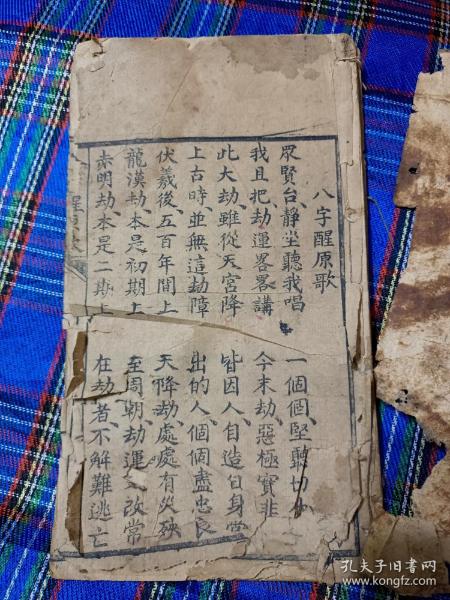 八字醒原歌
眾賢台靜坐聽我唱 一個個堅聽切
我且把劫運畧畧講 今末劫惡極實非
此大劫雖從天宮降 皆因人自造自身當
上古時並無這劫障 出的人個個盡忠良
伏羲後五百年間上 天降劫處處有災殃
龍漢劫本是初期上 至周朝劫運又改常
赤明劫本是二期上 在劫者不解難逃亡
孔夫子旧书网
www.kongfz.com